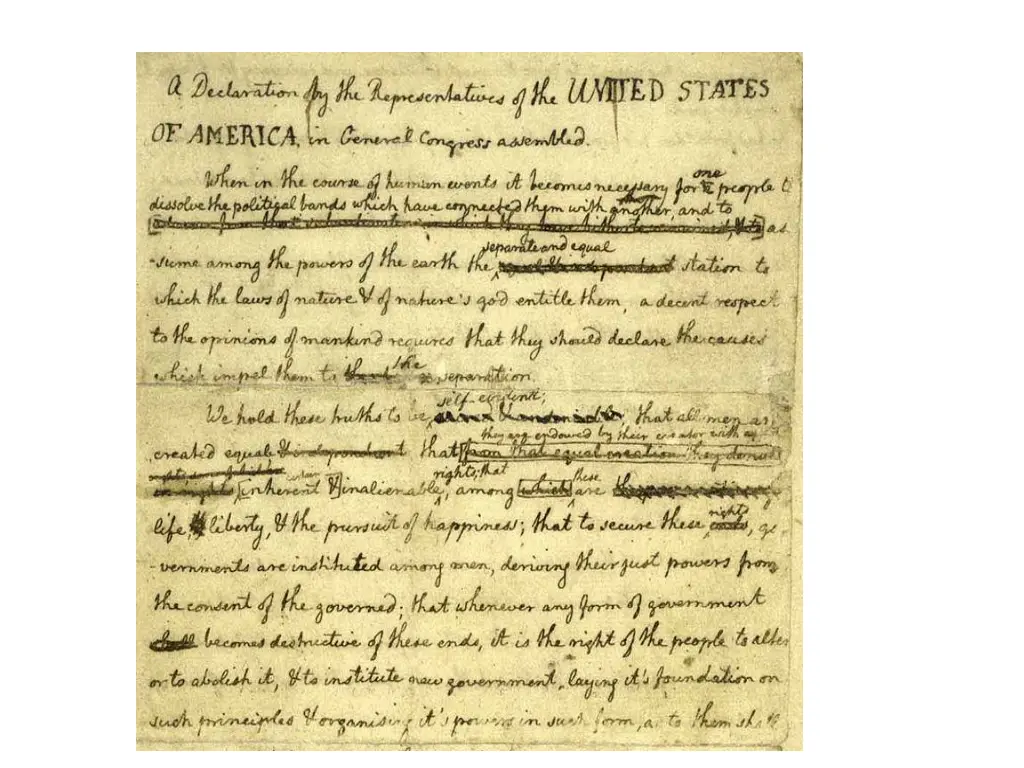 A Declaration by the Representatives of the UNITED STATES
OF AMERICA, in General Congress assembled.
one
When in the course of human events it becomes necessary for a people to
dissolve the political bands which have connected them with another, and to
advance from that subordination in which they have hitherto remained, & to as
separate and equal
-sume among the powers of the earth the equal & independant station to
which the laws of nature & of nature's god entitle them, a decent respect
to the opinions of mankind requires that they should declare the causes
the
which impel them to separation.
self-evident;
We hold these truths to be sacred & undeniable that all men are
they are endowed by their creator with
created equal & independent that from that equal creation they derive
certain
rights; that
these
inherent & inalienable, among which are
rights
life, & liberty, & the pursuit of happiness; that to secure these ends, go
-vernments are instituted among men, deriving their just powers from
the consent of the governed; that whenever any form of government
shall becomes destructive of these ends, it is the right of the people to alter
or to abolish it, & to institute new government, laying it's foundation on
such principles & organising it's powers in such form, as to them shall